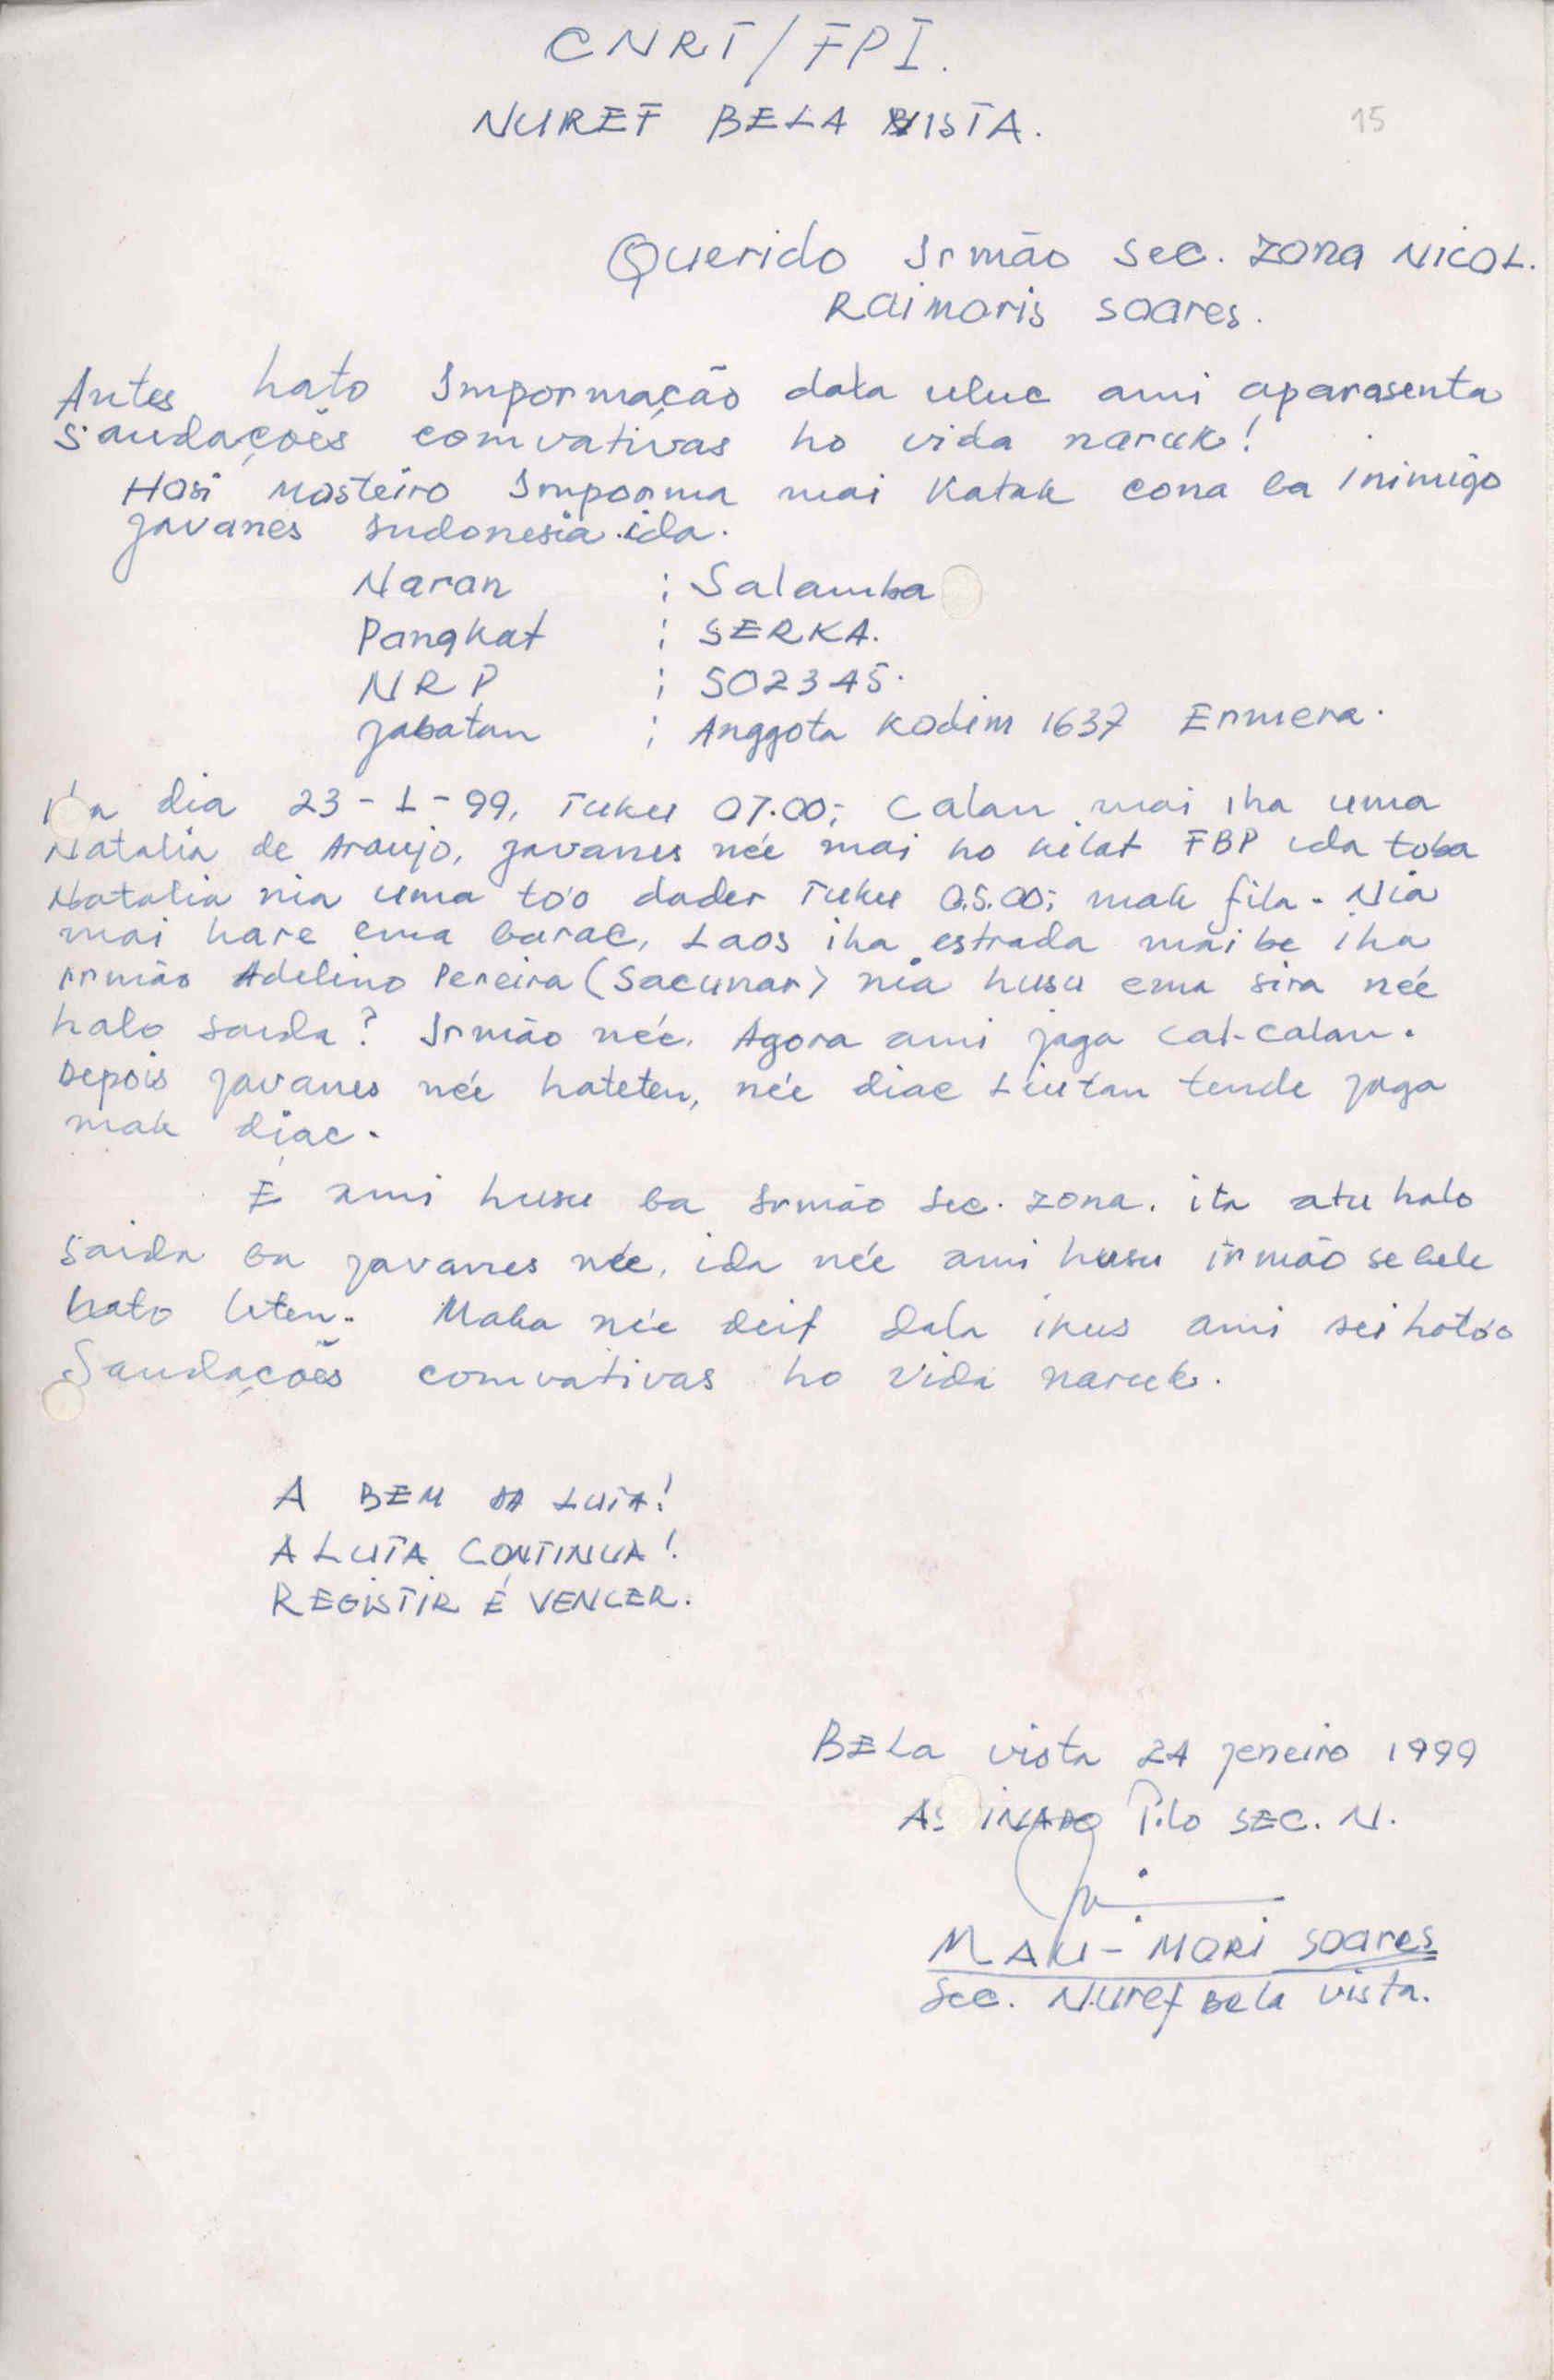 CNRT/FPI.
NUREF BELA VISTA.
15
Querido Irmão Sec. Zona NICOL.
Raimoris Soares.
Antes hato Impormação dala uluc ami aparasenta
Saudações comvativas ho vida naruk!
Hosi Mosteiro Imporma mai Katak cona ba Inimigo
Javanes Indonesia ida.
Naran : Salamba
Pangkat : SERKA.
NRP : 502345.
Jabatan : Anggota Kodim 1637 Ermera.
dia 23-1-99, Tuku 07.00; Calan mai iha uma
Natalia de Araujo, Javanes née mai ho kilat FBP ida toba
Natalia nia uma to'o dader Tuku 05.00; mak fila. Nia
mai hare ema barac, Laos iha estrada maibe iha
irmão Adelino Pereira (Sacunar) nia husu ema sira née
halo saida? Irmão née. Agora ami jaga cal-calan.
Depois Javanes née hateten, née diac Liutan tende jaga
mak diac.
E ami husu ba Irmão Sec. Zona. ita atu halo
saida ba Javanes née, ida née ami husu irmão se bele
hato liten. Maka née deit dala ikus ami sei hato'o
Saudações comvativas ho vida naruk.
A BEM DA LUTA!
A LUTA CONTINUA!
REGISTIR É VENCER.
BELA vista 24 Jeneiro 1999
AS INADO Pilo SEC. N.
MAU-MORI Soares
Sec. Nuref Bela vista.